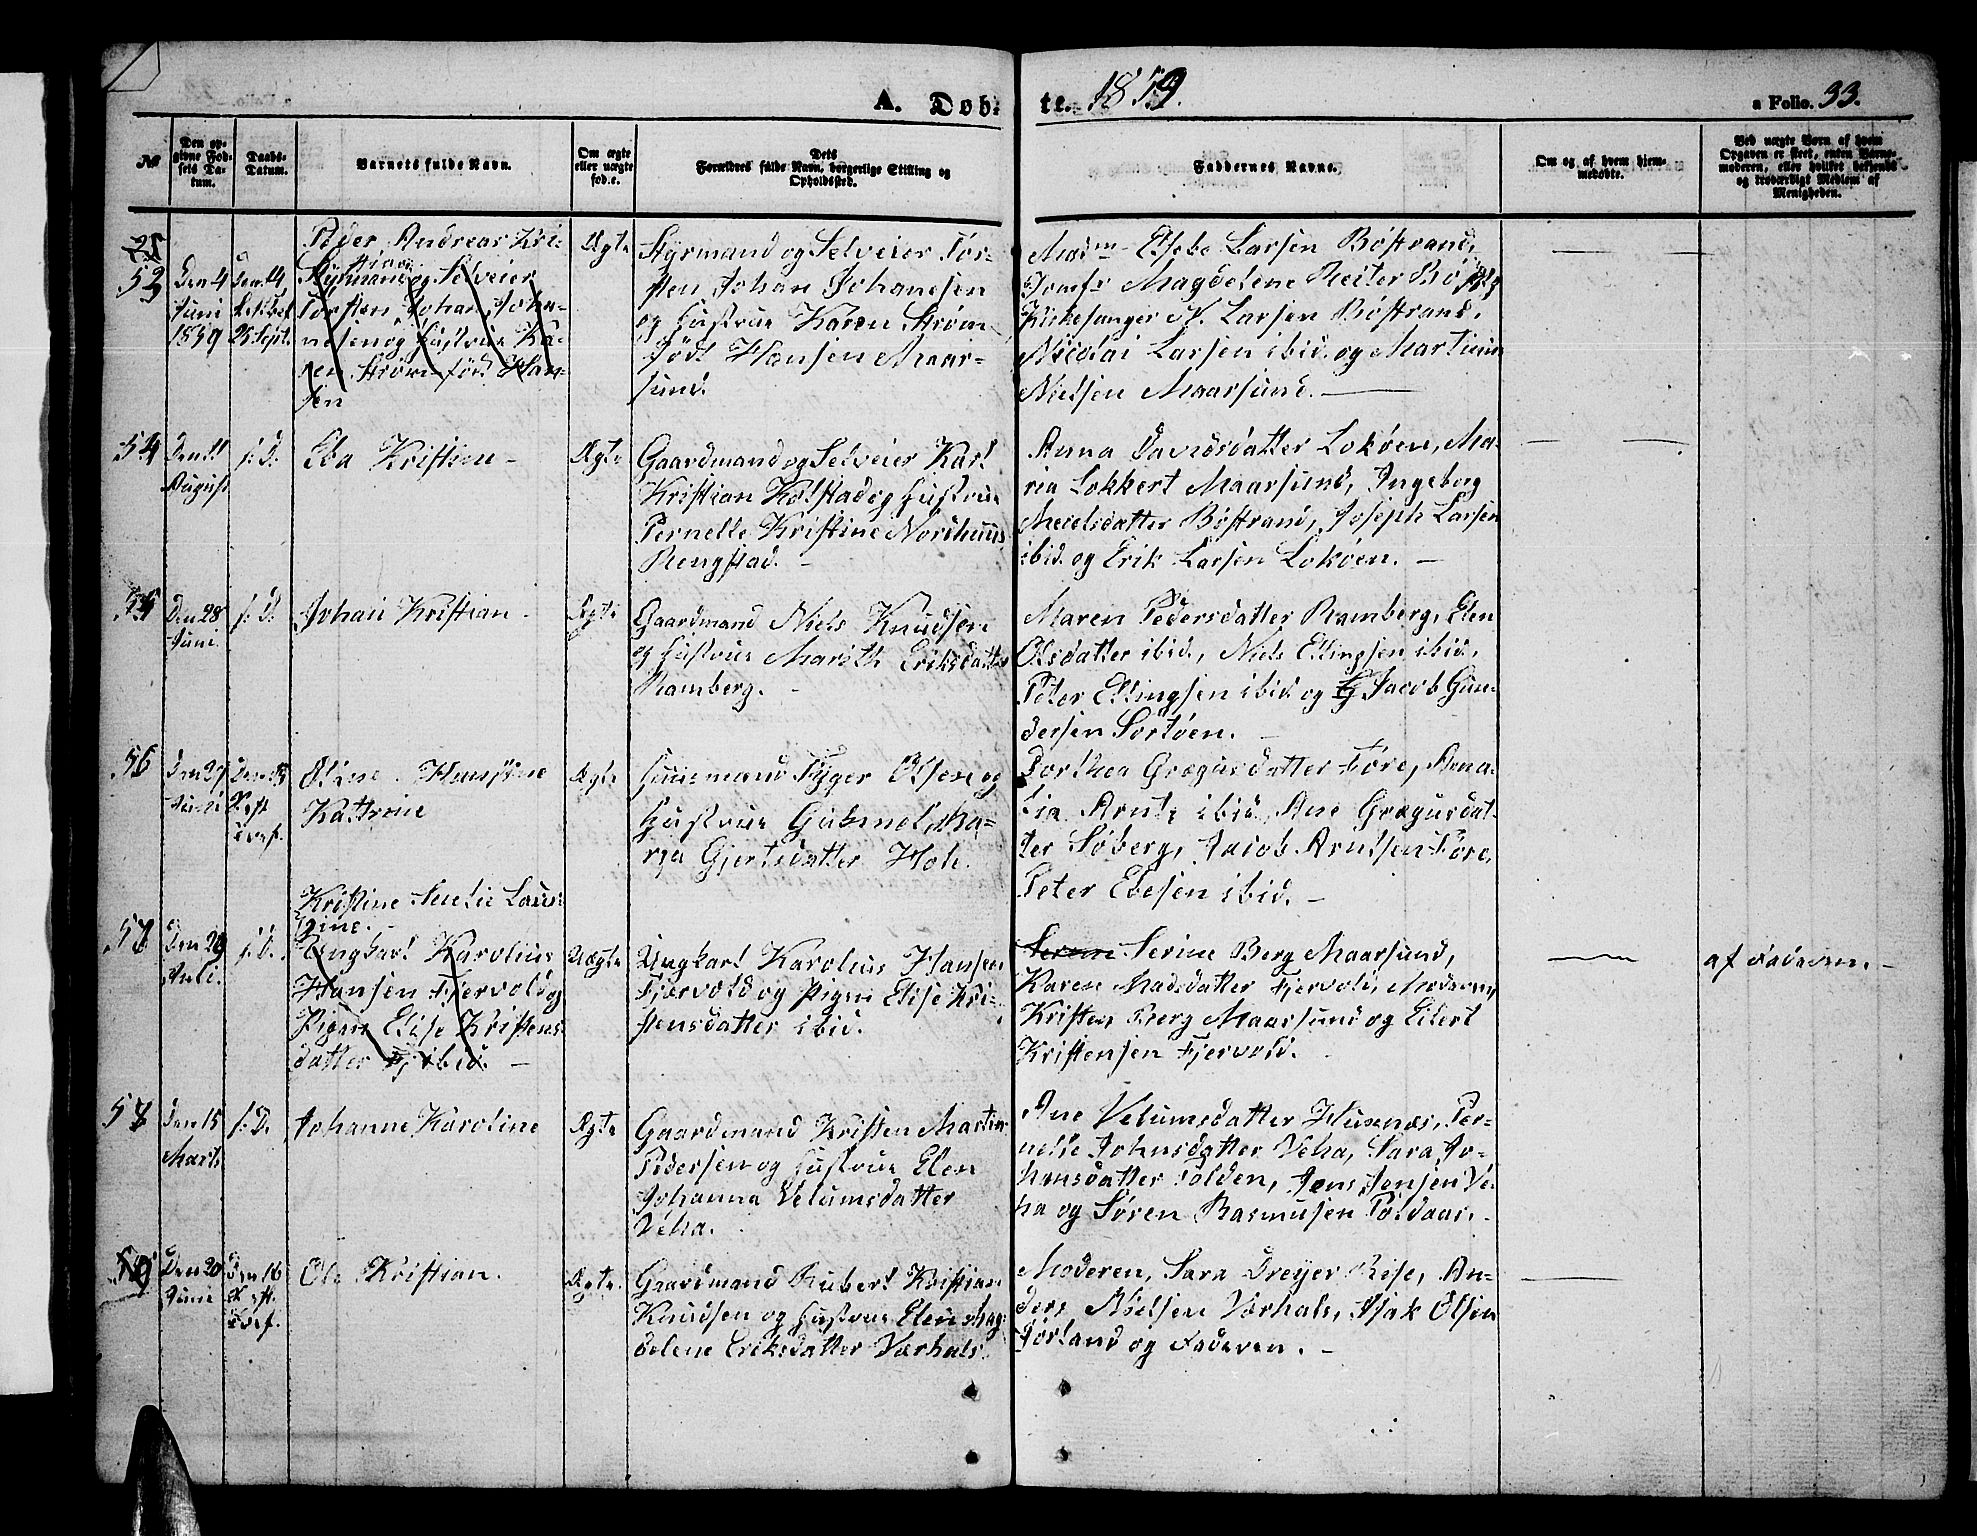 A. Døb-
te. 1859.
a Folio. 33.
No
Den op-
givne Fød-
sels Da-
tum.
Daabs-
Datum.
Barnets fulde Navn.
Om ægte
eller uægte
fød.e.
Dets
Forældres fulde Navn, borgerlige Stilling og
Opholdsted.
Faddernes Navne.
Om og af hvem hjem-
medøbte.
Ved uægte Børn af hvem
Opgaven er skeet, enten Barne-
moderen, eller hvilket bekjendt
og troværdigt Medlem af
Menigheden.
53
Den 4
Juni
1859
Den 14
25 Sept.
Peder Andreas Kri-
stian
Styrmand og Selveier
Torsten Johan Joha-
nesen og Hustrue Ka-
ren Strøm født Han-
sen
Ægte
Styrmand og Selveier Tor-
sten Johan Johanesen
og Hustrue Karen Strøm
født Hansen Maar-
sund.
Madm Elsebe Larsen Bøstrand,
Jomfr Magdelene Reiter
Kirkesanger N. Larsen Bøstrand,
Nicolai Larsen ibid. og Martinus
Nielsen Maarsund.
54
Den 11
August
s: D:
Eba Kristien
Ægte
Gaardmand og Selveier Karl
Kristian Kolstad og Hustrue
Pernelle Kristine Nordhuus
Rengstad.
Anna Davidsdatter Lokøen, Ma-
ria Lokkert Maarsund, Ingeborg
Meielsdatter Bøstrand, Joseph Larsen
ibid. og Erik Larsen Lokøen.
55
Den 28
Juni
s: D:
Johan Kristian
Ægte
Gaardmand Niels Knudsen
og Hustrue Marith Eriksdatter
Ramberg.
Maren Pedersdatter Ramberg, Elen
Olsdatter ibid., Niels Ellingsen ibid,
Peter Ellingsen ibid og Jacob Gun-
dersen Sortøen.
56
Den 27
Juni
Oline Hansine
Kathrine
Ægte
Huusmand Tyger Olsen og
Hustrue Gubmel Ma-
rja Gjertsdatter Hole.
Dorthea Gregusdatter Føre, Ama-
lia Arnts ibid, Ane Gregusdat-
ter Søberg, Jacob Arntsen Føre,
Peter Ebesen ibid.
57
Den 29
Juli.
s: D.
Kristine Amelie Laus-
gine.
Ungkarl Karolius
Hansen Fjervold og
Pigen Elise Kristens-
datter ibid.
Uægte
Ungkarl Karolius Hansen
Fjærvold og Pigen Elise Kri-
stensdatter ibid.
Serine Berg Maarsund,
Karen Madsdatter Fjervold, Moderen,
Kristen Berg Maarsund og Eilert
Kristensen Fjervold.
af Faderen.
58
Den 15
Marts
s: D.
Johanne Karoline
Ægte
Gaardmand Kristen Martin
Pedersen og Hustrue Elen
Johanna Velumsdatter
Veha.
Ane Velumsdatter Husnæs, Per-
nelle Johnsdatter Veha, Sara Jo-
hansdatter Folden, Jens Jensen Ve-
ha og Søren Rasmusen
59
Den 20
Juni
Den 16
Ole Kristian.
Ægte.
Gaardmand Hubert Kristian
Knudsen og Hustrue Elen Mag-
delene Eriksdatter Værhals.
Moderen, Sara Dreyer Rise, An-
ders Nielsen Værhals, Isak Olsen
Jørland og Faderen.